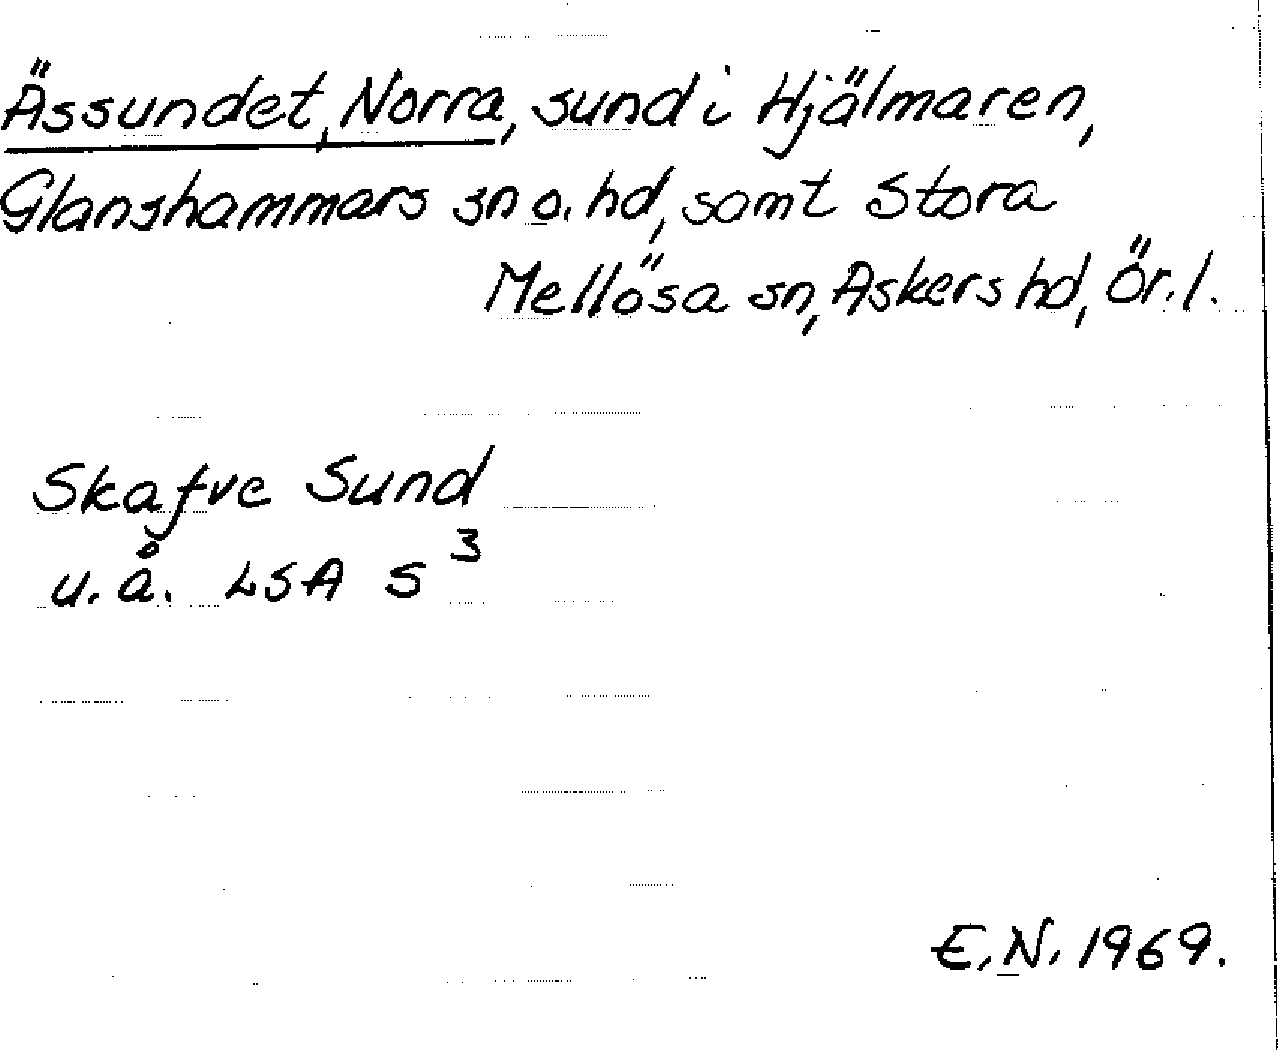 Ässundet, Norra, sund i Hjälmaren,
Glanshammars sn o. hd, samt Stora
Mellösa sn, Askers hd, Ör. l.
Skafve Sund
u. å. LSA S 3
E. N. 1969.